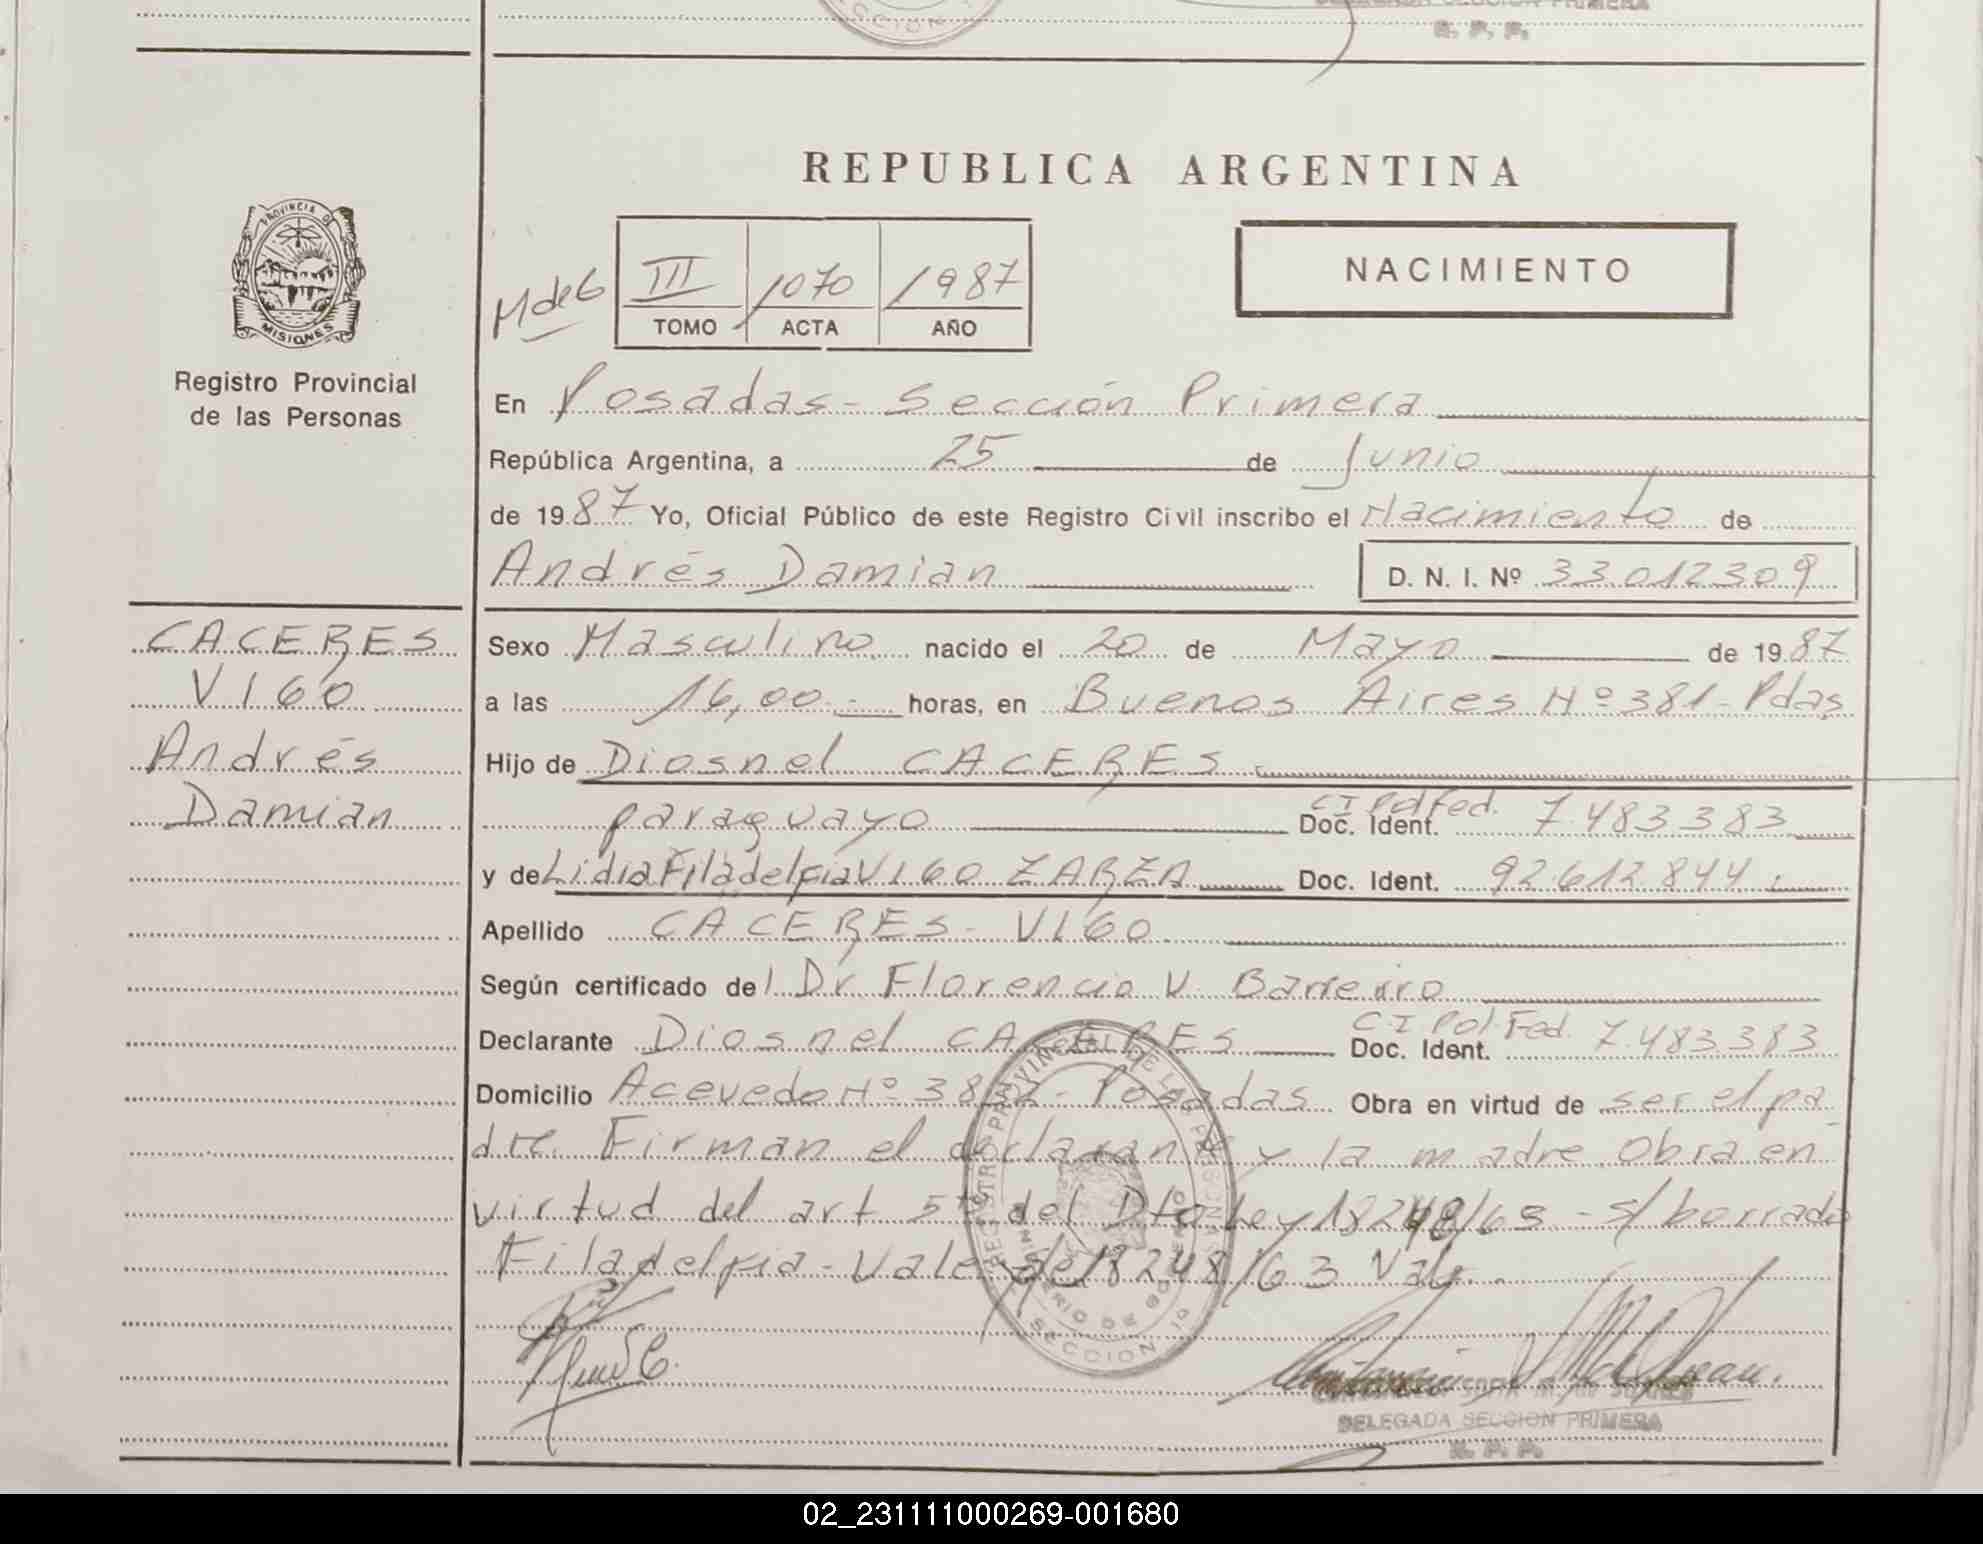 SECCION 1
DELEGADA SECCION PRIMERA
R. P. P.
REPUBLICA ARGENTINA
PROVINCIA DE
MISIONES
Registro Provincial
de las Personas
M de G
III 1070 1987
TOMO ACTA AÑO
NACIMIENTO
En Posadas - Sección Primera
República Argentina, a 25 de Junio
de 1987 Yo, Oficial Público de este Registro Civil inscribo el Nacimiento de
Andrés Damian D. N. I. Nº 33.012309
CACERES
VIGO
Andrés
Damian
Sexo Masculino nacido el 20 de Mayo de 1987
a las 16,00.- horas, en Buenos Aires Nº 381 - Pdas.
Hijo de Diosnel CACERES
paraguayo CI Pol Fed. Doc. Ident. 7.483.383
y de Lidia Filadelfia VIGO ZARZA Doc. Ident. 92.612.844.
Apellido CACERES - VIGO
Según certificado del Dr Florencio V. Barreiro
Declarante Diosnel CACERES CI Pol. Fed. Doc. Ident. 7.483.383
Domicilio Acevedo Nº 3832 - Posadas Obra en virtud de ser el pa
dre. Firman el declarante y la madre. Obra en
virtud del art 5to del Dto-Ley 18248/63 - s/ borrado
Filadelfia - Vale - 18248/63 Vale.
REGISTRO PROVINCIAL DE LAS PERSONAS
MINISTERIO DE GOBIERNO
SECCION 1a
DELEGADA SECCION PRIMERA
R. P. P.
02_231111000269-001680